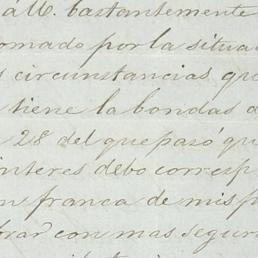 á U. bastantemente
omado por la situa
s circunstancias que
tiene la bondad d
28 del que pasó qu
interes debo corresp
n franca de mis p
brar con mas segur